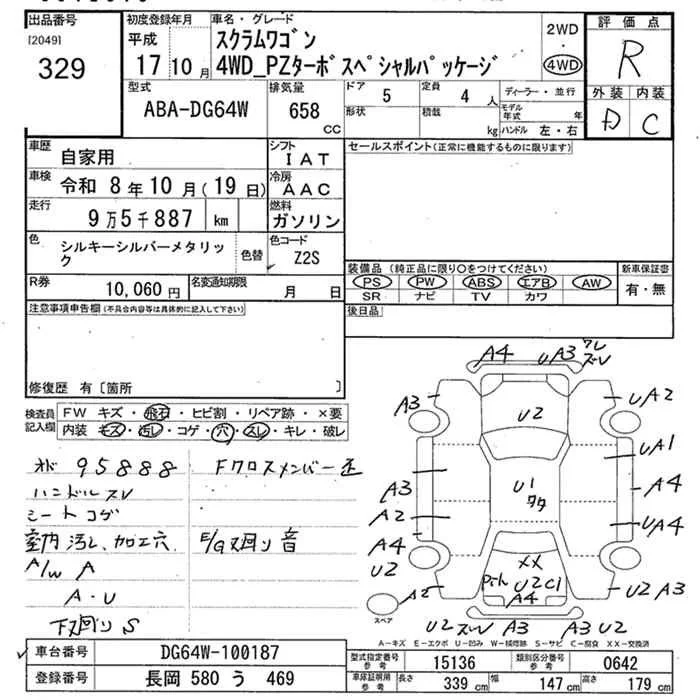 出品番号
[2049]
329
初度登録年月
平成
17 10 月
車名・グレード
スクラムワゴン
4WD_PZターボスペシャルパッケージ
2WD
・
4WD
評価点
R
外装 内装
D C
型式
ABA-DG64W
排気量
658
CC
ドア
5
定員
4 人
形状
積載
kg
ディーラー・並行
モデル年式 年
ハンドル 左・右
車歴
自家用
シフト
IAT
車検
令和 8年10月(19日)
冷房
AAC
走行
9万5千887 km
燃料
ガソリン
色
シルキーシルバーメタリック
色替
色コード
Z2S
R券
10,060円
名変通知期限
月 日
セールスポイント(正常に機能するものに限ります)
装備品 (純正品に限り○をつけてください)
PS PW ABS エアB AW
SR ナビ TV カワ
新車保証書
有・無
後日品
注意事項申告欄(不具合内容等は具体的に記入して下さい)
修復歴 有〔箇所 〕
検査員記入欄
FW キズ・飛石・ヒビ割・リペア跡・×要
内装 キズ・汚し・コゲ・穴・スレ・キレ・破レ
メド 95888
ハンドルスレ
シートコゲ
室内汚し、加工穴
A/W A
A・U
下廻りS
Fクロスメンバー歪
E/G廻り音
A4
UA3
ワレ
ズレ
A3
U2
UA2
UA1
A3
U1
タタ
A4
A2
UA4
A4
U2
XX
U2C1
A4
U2 A3
スペア
U2 ズレ A3
A3 U2
A-キズ E-エクボ U-凹み W-補修跡 S-サビ C-腐食 XX-交換済
車台番号
DG64W-100187
登録番号
長岡 580 う 469
型式指定番号
参考
15136
類別区分番号
参考
0642
車庫証明用
参考
長さ 339 cm
幅 147 cm
高さ 179 cm